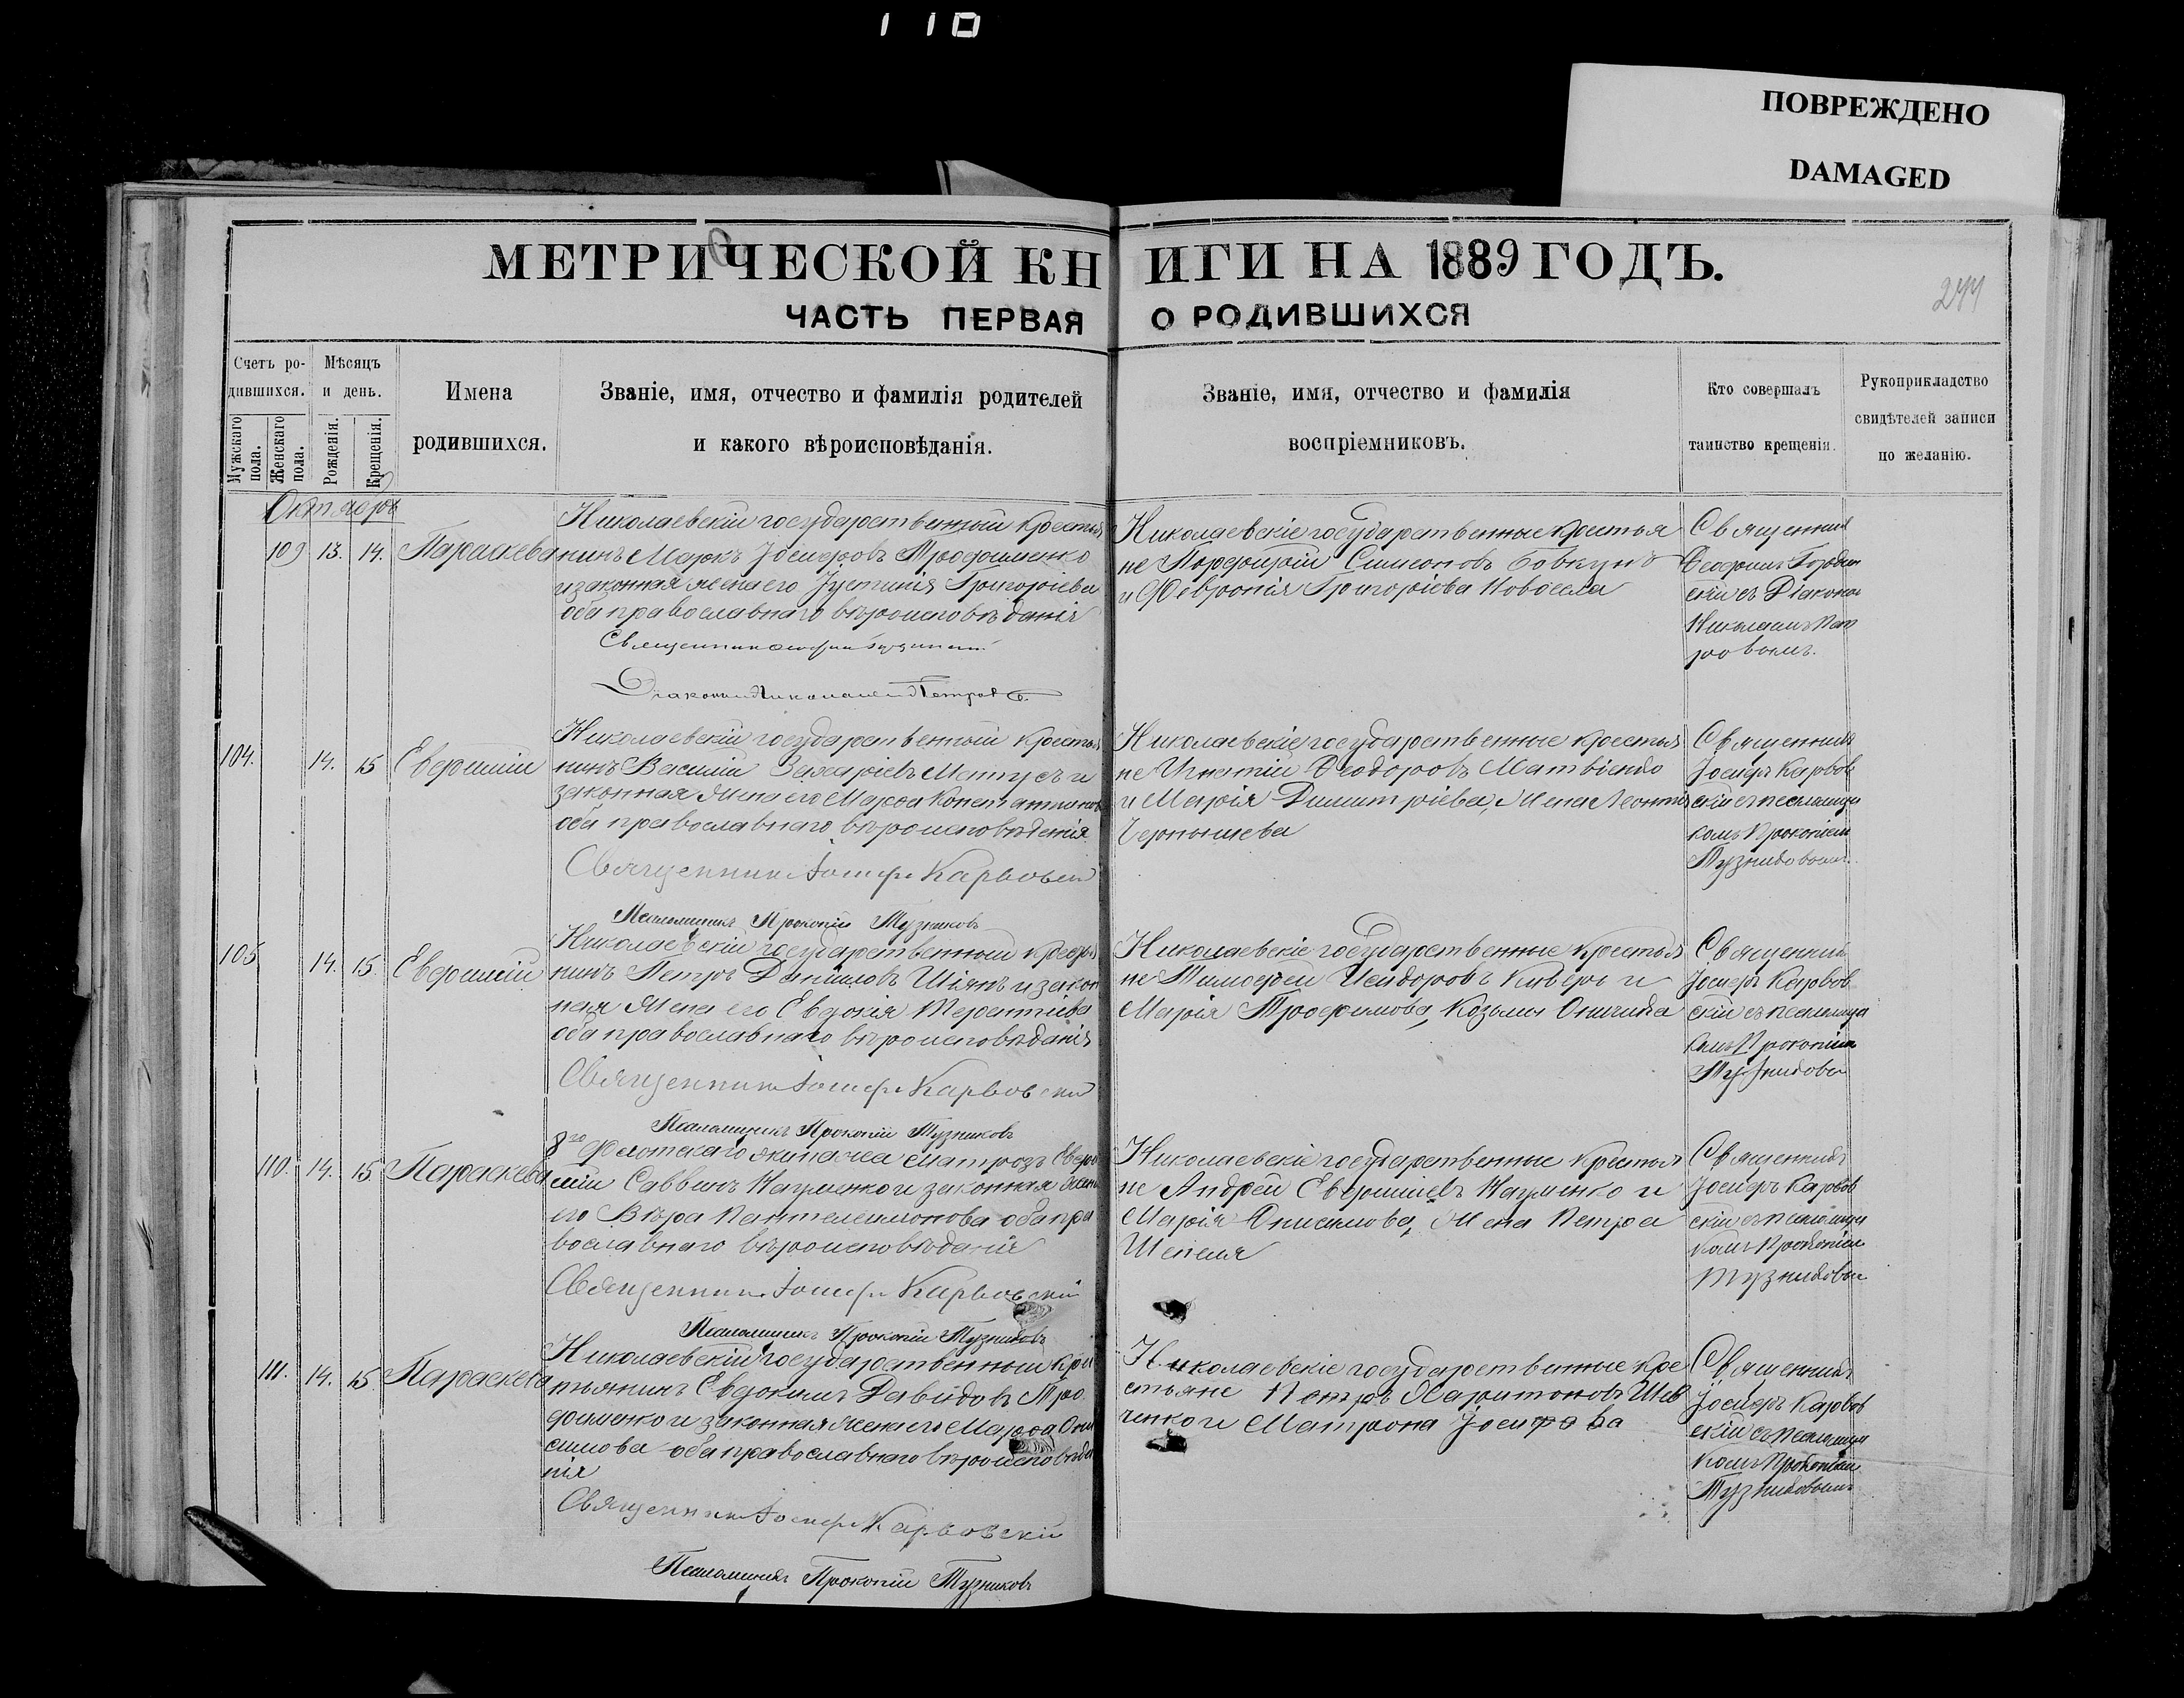 110
ПОВРЕЖДЕНО
DAMAGED
МЕТРИЧЕСКОЙ КНИГИ НА 1889 ГОДЪ.
244
ЧАСТЬ ПЕРВАЯ О РОДИВШИХСЯ
Счетъ ро-
дившихся.
Мужскаго пола.
Женскаго пола.
Мѣсяцъ
и день.
Рожденія.
Крещенія.
Имена
родившихся.
Званіе, имя, отчество и фамилія родителей
и какого вѣроисповѣданія.
Званіе, имя, отчество и фамилія
воспріемниковъ.
Кто совершалъ
таинство крещенія.
Рукоприкладство
свидѣтелей записи
по желанію.
Октября
109 13. 14. Параскева
Николаевскій государственный крестья
нинъ Маркъ Іосифовъ Трофименко
и законная жена его Іустинія Григоріева
оба православнаго вѣроисповѣданія
Священникъ
Діаконъ Николай Петровъ
Николаевскіе государственные крестья
не Порфирій Симеоновъ Бовкунъ
и Февронія Григоріева Новосела
Священникъ
Феофилъ
скій съ Діакономъ
Николаемъ Пет
ровымъ.
104. 14. 15 Евфимій
Николаевскій государственный крестья
нинъ Василій Захаріевъ Матусъ и
законная жена его Марфа Константинова
оба православнаго вѣроисповѣданія
Священникъ Іосифъ Карвовскій
Псаломщикъ Прокопій Тузниковъ
Николаевскіе государственные крестья
не Игнатій Феодоровъ Матвіенко
и Марія Димитріева, жена Леонтія
Чернышева
Священникъ
Іосифъ Карвов
скій съ псаломщи
комъ Прокопіем
Тузниковымъ.
105 14. 15. Евфимій
Николаевскій государственный крестья
нинъ Петръ Даниловъ Шіянъ и закон
ная жена его Евдокія Терентіева
оба православнаго вѣроисповѣданія
Священникъ Іосифъ Карвовскій
Псаломщикъ Прокопій Тузниковъ
Николаевскіе государственные крестья
не Тимофей Исидоровъ и
Марія Трофимова, Козьмы
Священникъ
Іосифъ Карвов
скій съ псаломщи
комъ Прокопіем
Тузниковым
110. 14. 15. Параскева
8го Флотскаго экипажа матрозъ Евфи
мій Саввинъ Науменко и законная жена
его Вѣра Пантелеимонова оба пра
вославнаго вѣроисповѣданія
Священникъ Іосифъ Карвовскій
Псаломщикъ Прокопій Тузниковъ
Николаевскіе государственные крестья
не Андрей Евфиміевъ Науменко и
Марія Онисимова, жена Петра
Шепеля
Священникъ
Іосифъ Карвов
скій съ псаломщи
комъ Прокопіем
Тузниковым
111. 14. 15. Параскева
Николаевскій государственный крес
тьянинъ Евдокимъ Давидовъ Тро
фименко и законная жена его Марфа Они
симова оба православнаго вѣроисповѣда
нія
Священникъ Іосифъ Карвовскій
Псаломщикъ Прокопій Тузниковъ
Николаевскіе государственные кре
стьяне Петръ Харитоновъ Шев
ченко и Матрона Іосифова
Священникъ
Іосифъ Карвов
скій съ псаломщи
комъ Прокопіем
Тузниковымъ